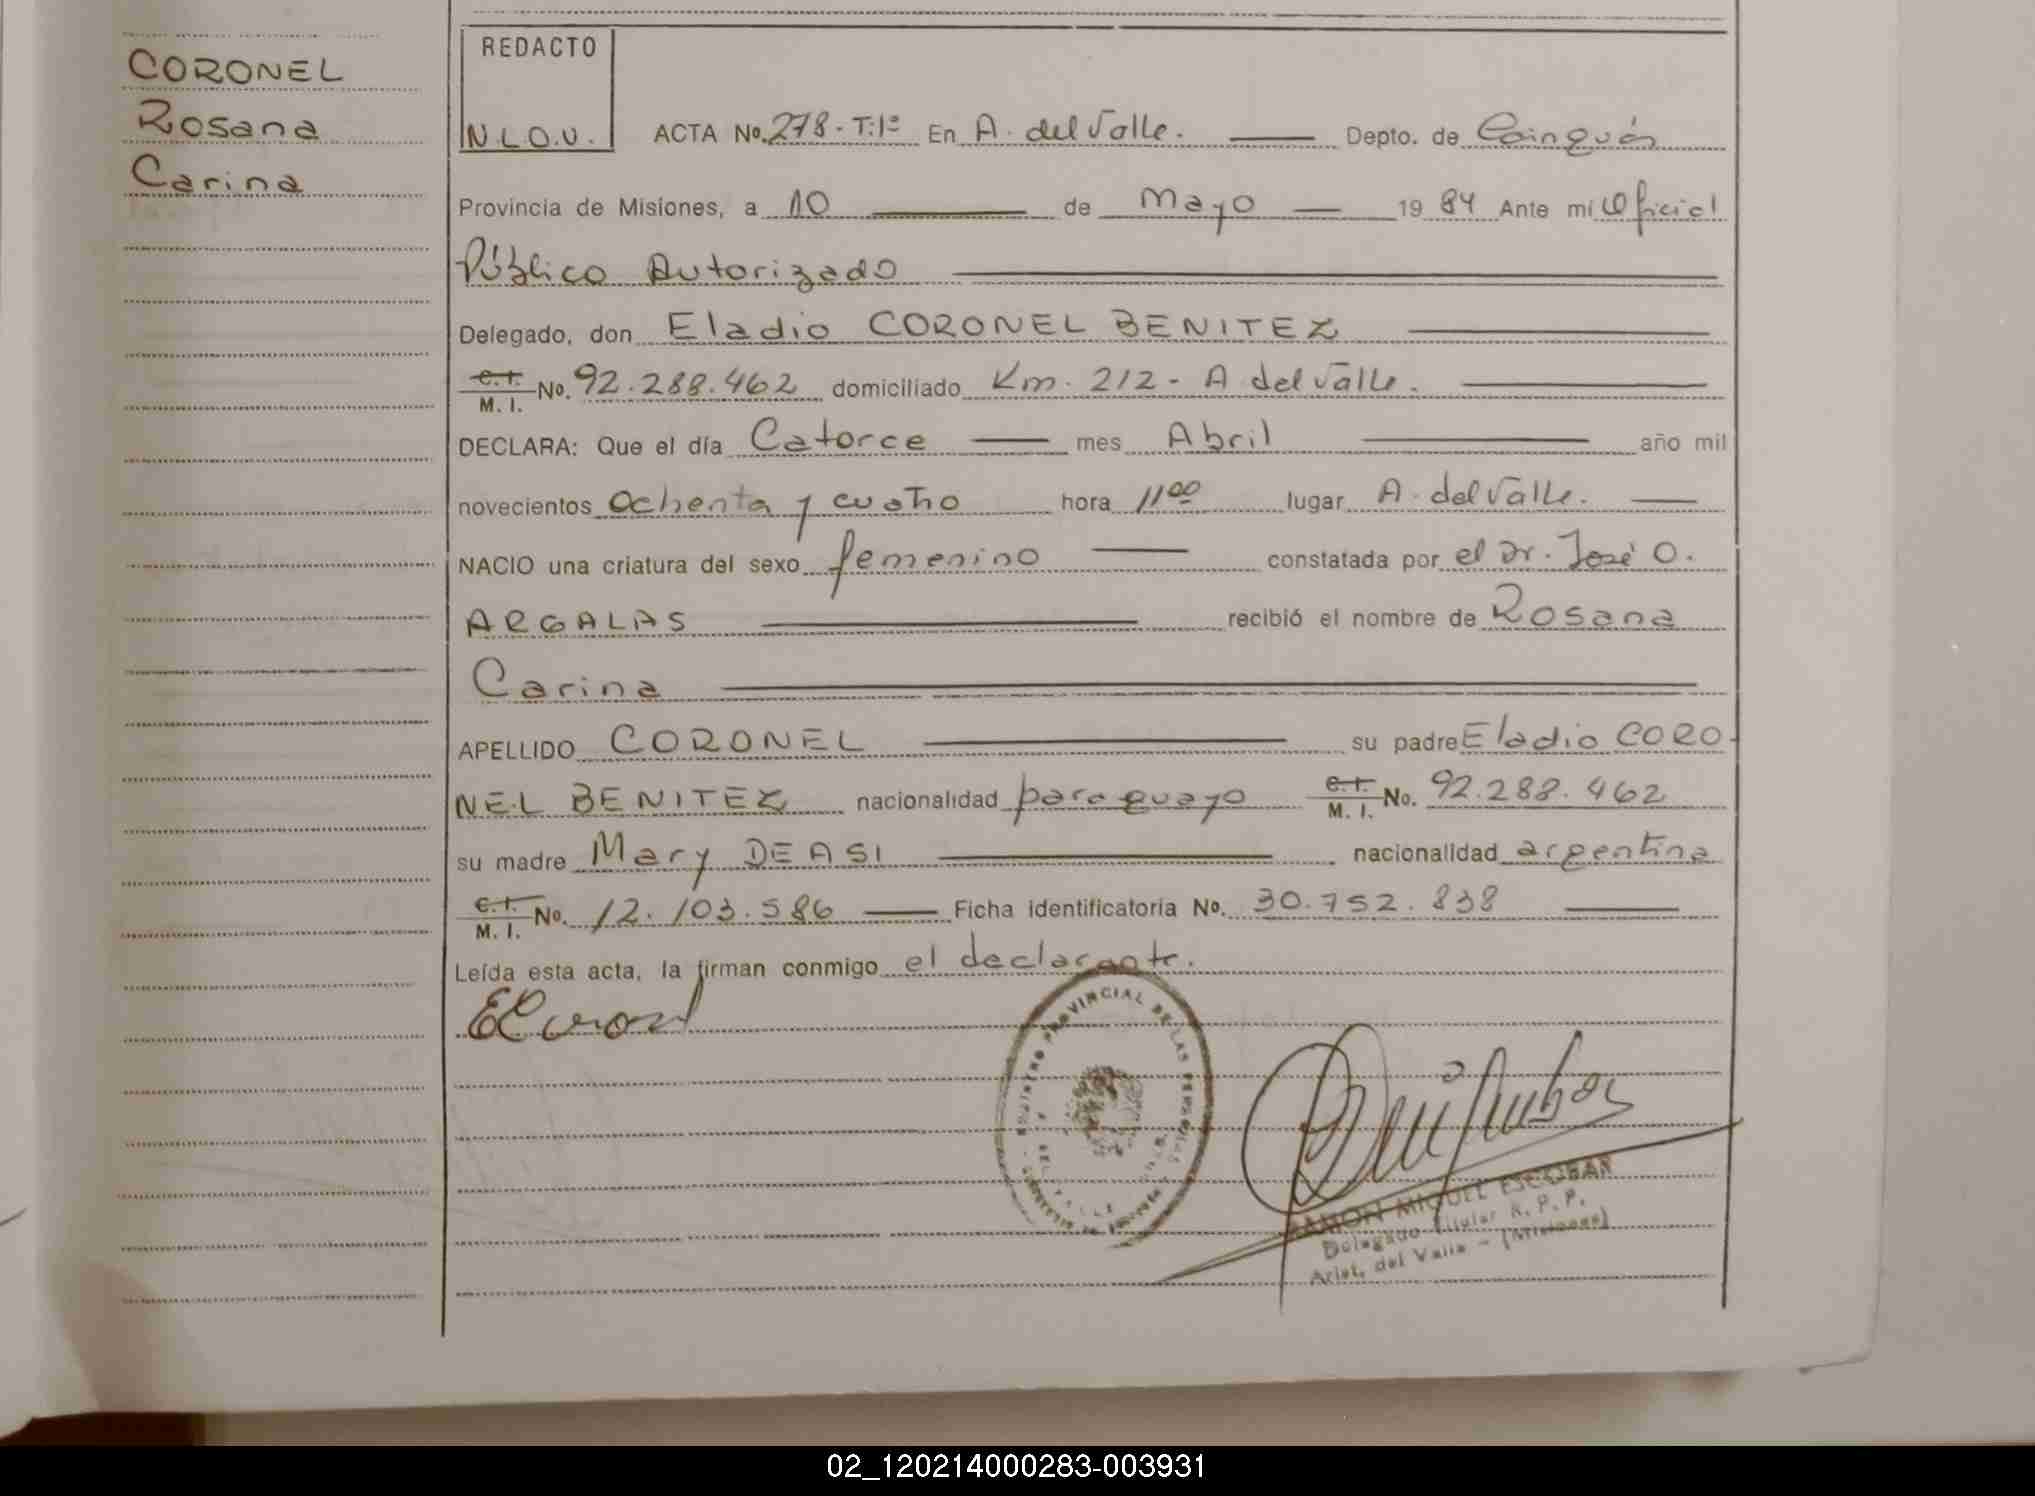 CORONEL
Rosana
Carina
REDACTO
N.L.O.V.
ACTA No. 278-T:1º En A. del Valle. Depto. de Cainguás
Provincia de Misiones, a 10 de Mayo 1984 Ante mi Oficial
Público Autorizado
Delegado, don Eladio CORONEL BENITEZ
C.I. M. I. No. 92.288.462 domiciliado Km. 212 - A del Valle.
DECLARA: Que el día Catorce mes Abril año mil
novecientos ochenta y cuatro hora 1100 lugar A. del Valle.
NACIO una criatura del sexo femenino constatada por el Dr. José O.
ARGALAS recibió el nombre de Rosana
Carina
APELLIDO CORONEL su padre Eladio CORO-
NEL BENITEZ nacionalidad paraguayo C.I. M. I. No. 92.288.462
su madre Mary DEASI nacionalidad argentina
C.I. M. I. No. 12.103.586 Ficha identificatoria No. 30.752.838
Leída esta acta, la firman conmigo el declarante.
REGISTRO PROVINCIAL DE LAS PERSONAS
RAMON MIGUEL ESCOBAR
Delegado Titular R. P. P.
Arist. del Valle - (Misiones)
02_120214000283-003931